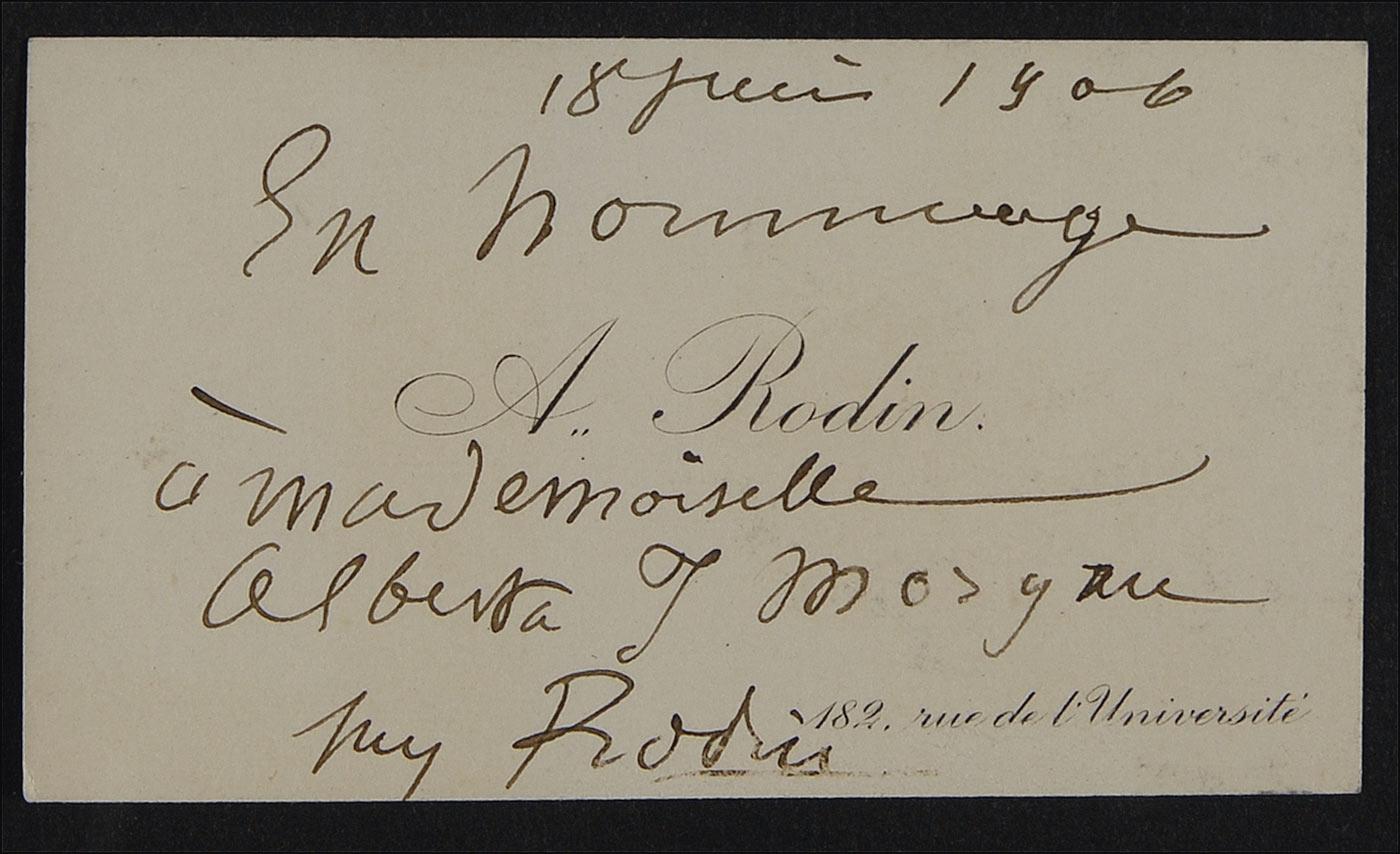 18 Juin 1906
En hommage
A. Rodin.
à mademoiselle
Alberta J Morgan
Aug Rodin
182, rue de l'Université